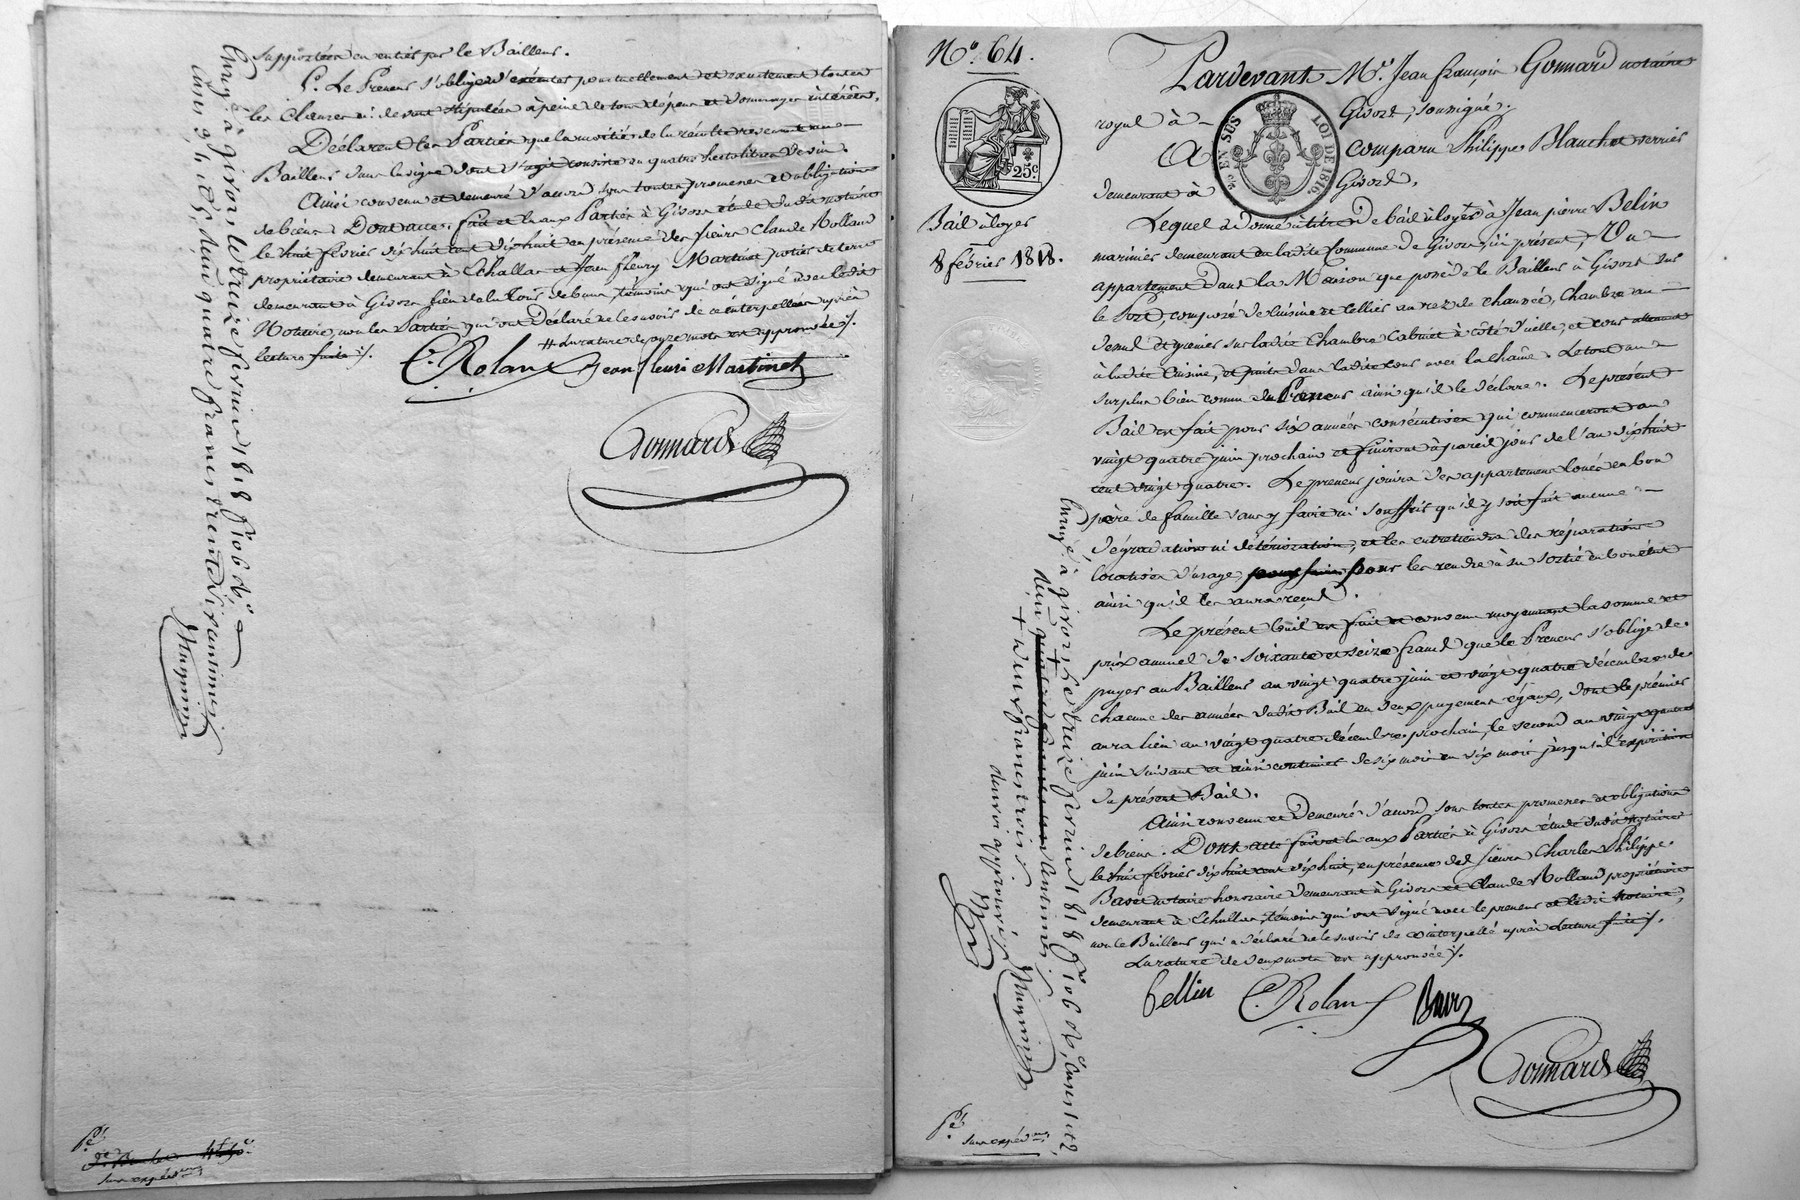 supportés en entier par le Bailleur.
6°. Le Preneur s'oblige d'exécuter ponctuellement et exactement toutes
les Clauses ci devant stipulées à peine de tous dépens et dommages intérêts.
Déclarent les Parties que la moitié de la récolte revenant au
Bailleur dans la vigne dont s'agit consiste en quatre hectolitres de vin.
Ainsi convenu et demeuré d'accord sous toutes promesses et obligations
de biens. Dont acte: fait et lu aux Parties à Givors étude dudit notaire
le huit février dix huit cent dixhuit en présence des sieurs Claude Rolland
propriétaire demeurant à Echallas et Jean fleury Martinet potier de terre
demeurant à Givors témoins qui ont signé avec ledit
Notaire, non les Parties qui ont Déclaré ne le savoir de ce interpellées après
lecture faite ./.
# La rature de onze mots est approuvée ./.
C. Roland jean fleuri Martinet
Gonnard
Enregé à givors le treize fevrier 1818 f° 106
deux francs
Pé
sur expédon
N° 64.
25c.
2c. EN SUS
LOI DE 1816.
Bail à loyer
8 février 1818.
Pardevant Me. Jean françois Gonnard notaire
royal à Givors, soussigné.
A comparu Philippe Blanchet verrier
demeurant à Givors.
Lequel a donné à titre de bail à loyer à Jean pierre Belin
marinier demeurant en ladite Commune de Givors, ici présent, Un
appartement dans la Maison que possède le Bailleur à Givors sur
le Port, composé de Cuisine et cellier au rez de chaussée, Chambre au
dessus et grenier sur ladite Chambre Cabinet à côté d'icelle, et cour attenant
à ladite Cuisine, et puits dans ladite cour avec la chaîne. Le tout au
surplus bien connu du Preneur ainsi qu'il le déclare. Le présent
Bail est fait pour six années consécutives qui commenceront au
vingt quatre juin prochain et finiront à pareil jour de l'an dixhuit
cent vingt quatre. Le preneur jouira des appartemens loués en bon
père de famille sans y faire ni souffrir qu'il y soit fait aucune
dégradation ni détérioration, et les entretiendra des réparations
locatives d'usage, pour les rendre à sa sortie en bon état
ainsi qu'il les aura reçus.
Le présent bail est fait et convenu moyennant la somme et
prix annuel de soixante et seize francs que le Preneur s'oblige de
payer au Bailleur au vingt quatre juin et vingt quatre décembre de
chacune des années dudit Bail en deux payemens égaux, dont le prémier
aura lieu au vingt quatre décembre prochain, le second au vingt quatre
juin suivant et ainsi continuer de six mois en six mois jusqu'à l'expiration
du présent Bail.
Ainsi convenu et Demeuré d'accord sous toutes promesses et obligations
de biens. Dont acte fait et lu aux Parties à Givors étude dudit Notaire
le huit février dix huit cent dix huit, en présence des sieurs Charles Philippe
Bavet notaire honoraire demeurant à Givors et Claude Rolland propriétaire
demeurant à Echallas, témoins qui ont signé avec le preneur et ledit Notaire,
non le Bailleur qui a déclaré ne le savoir de ce interpellé après lecture faite ./.
La rature de deux mots est approuvée ./.
bellin C. Roland Bavet
Gonnard
Enregé à givors le treize fevrier 1818 f° 106
+ deux francs
Pé
sur expédon